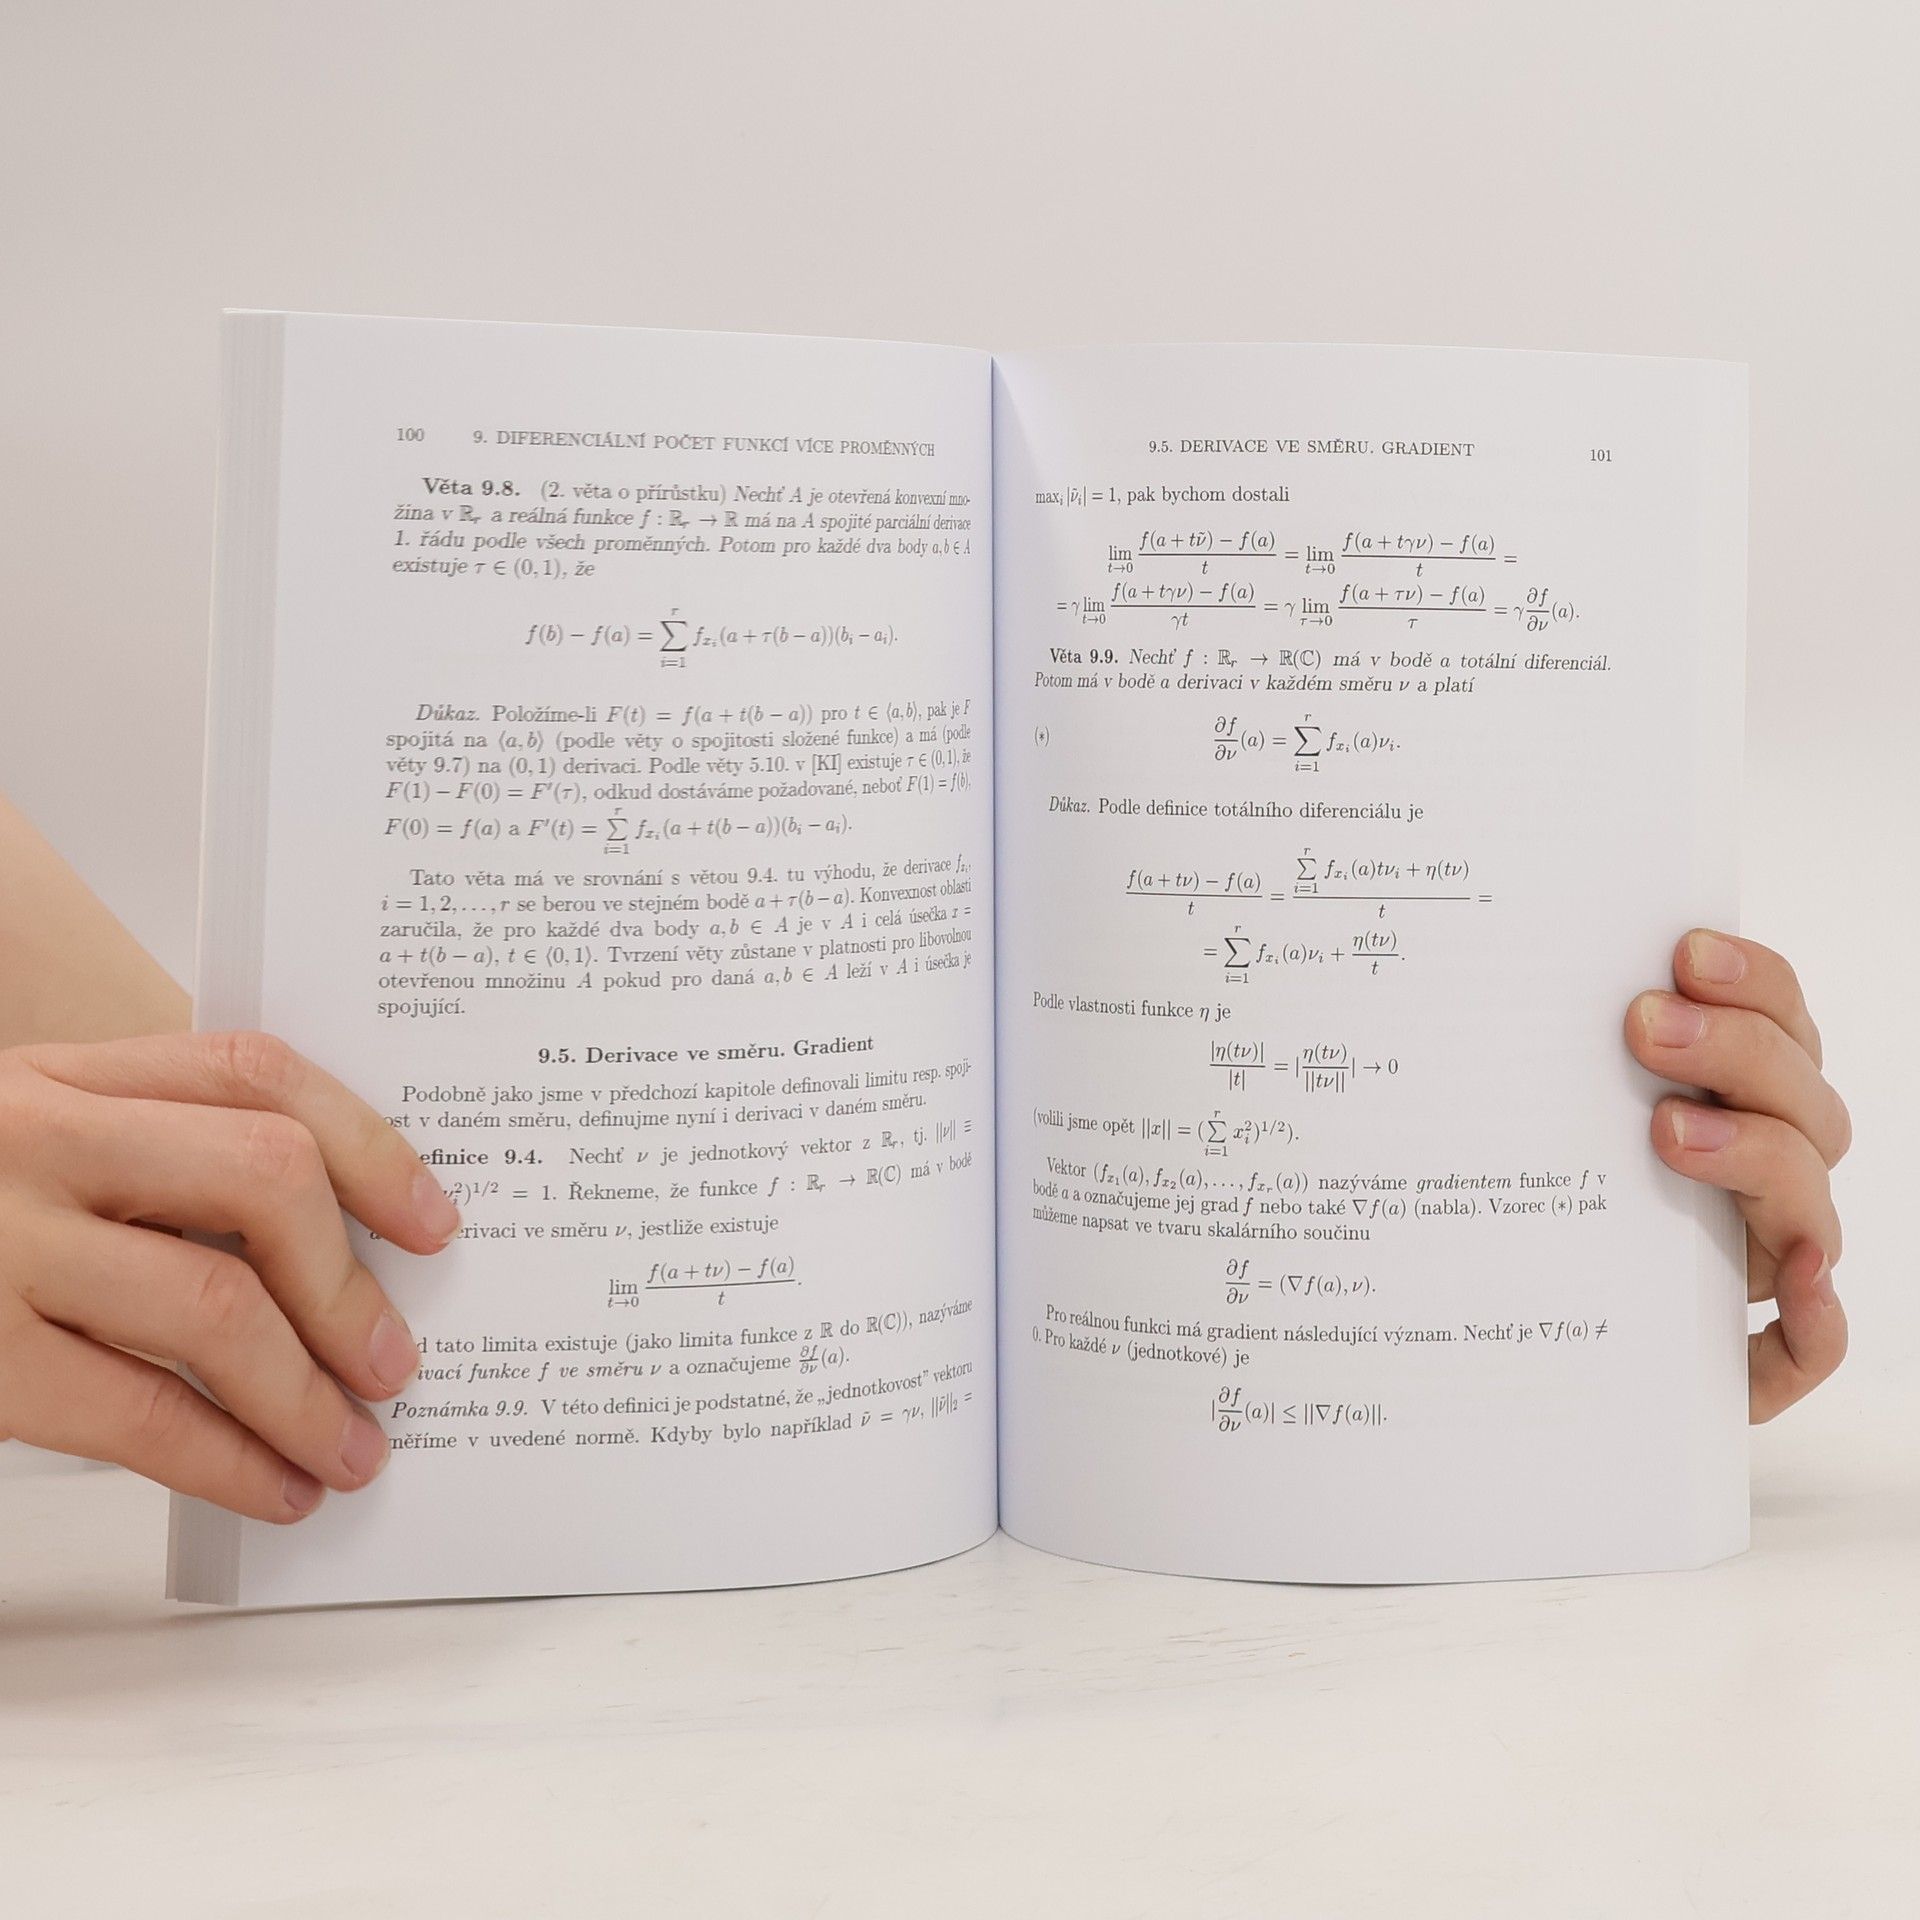 100 9. DIFERENCIÁLNÍ POČET FUNKCÍ VÍCE PROMĚNNÝCH
Věta 9.8. (2. věta o přírůstku) Nechť A je otevřená konvexní mno-
žina v ℝᵣ a reálná funkce f : ℝᵣ → ℝ má na A spojité parciální derivace
1. řádu podle všech proměnných. Potom pro každé dva body a, b ∈ A
existuje τ ∈ (0, 1), že
f(b) − f(a) = ∑_{i=1}^{r} f_{x_i}(a + τ(b − a))(b_i − a_i).
Důkaz. Položíme-li F(t) = f(a + t(b − a)) pro t ∈ ⟨a, b⟩, pak je F
spojitá na ⟨a, b⟩ (podle věty o spojitosti složené funkce) a má (podle
věty 9.7) na (0, 1) derivaci. Podle věty 5.10. v [KI] existuje τ ∈ (0, 1), že
F(1) − F(0) = F′(τ), odkud dostáváme požadované, neboť F(1) = f(b),
F(0) = f(a) a F′(t) = ∑_{i=1}^{r} f_{x_i}(a + t(b − a))(b_i − a_i).
Tato věta má ve srovnání s větou 9.4. tu výhodu, že derivace f_{x_i},
i = 1, 2, . . . , r se berou ve stejném bodě a + τ(b − a). Konvexnost oblasti
zaručila, že pro každé dva body a, b ∈ A je v A i celá úsečka x =
a + t(b − a), t ∈ ⟨0, 1⟩. Tvrzení věty zůstane v platnosti pro libovolnou
otevřenou množinu A pokud pro daná a, b ∈ A leží v A i úsečka je
spojující.
9.5. Derivace ve směru. Gradient
Podobně jako jsme v předchozí kapitole definovali limitu resp. spoji-
ost v daném směru, definujme nyní i derivaci v daném směru.
efinice 9.4. Nechť ν je jednotkový vektor z ℝᵣ, tj. ||ν|| ≡
ν_i^2)^{1/2} = 1. Řekneme, že funkce f : ℝᵣ → ℝ(ℂ) má v bodě
erivaci ve směru ν, jestliže existuje
lim_{t→0} \frac{f(a + tν) − f(a)}{t}.
d tato limita existuje (jako limita funkce z ℝ do ℝ(ℂ)), nazýváme
ivací funkce f ve směru ν a označujeme \frac{∂f}{∂ν}(a).
Poznámka 9.9. V této definici je podstatné, že „jednotkovost” vektoru
měříme v uvedené normě. Kdyby bylo například ν̃ = γν, ||ν̃||₂ =
9.5. DERIVACE VE SMĚRU. GRADIENT 101
max_i |ν̃_i| = 1, pak bychom dostali
lim_{t→0} \frac{f(a + tν̃) − f(a)}{t} = lim_{t→0} \frac{f(a + tγν) − f(a)}{t} =
= γ lim_{t→0} \frac{f(a + tγν) − f(a)}{γt} = γ lim_{τ→0} \frac{f(a + τν) − f(a)}{τ} = γ \frac{∂f}{∂ν}(a).
Věta 9.9. Nechť f : ℝᵣ → ℝ(ℂ) má v bodě a totální diferenciál.
Potom má v bodě a derivaci v každém směru ν a platí
(*) \frac{∂f}{∂ν}(a) = ∑_{i=1}^{r} f_{x_i}(a)ν_i.
Důkaz. Podle definice totálního diferenciálu je
\frac{f(a + tν) − f(a)}{t} = \frac{∑_{i=1}^{r} f_{x_i}(a)tν_i + η(tν)}{t} =
= ∑_{i=1}^{r} f_{x_i}(a)ν_i + \frac{η(tν)}{t}.
Podle vlastnosti funkce η je
\frac{|η(tν)|}{|t|} = |\frac{η(tν)}{||tν||}| → 0
(volili jsme opět ||x|| = (∑_{i=1}^{r} x_i^2)^{1/2}).
Vektor (f_{x_1}(a), f_{x_2}(a), . . . , f_{x_r}(a)) nazýváme gradientem funkce f v
bodě a a označujeme jej grad f nebo také ∇f(a) (nabla). Vzorec (*) pak
můžeme napsat ve tvaru skalárního součinu
\frac{∂f}{∂ν} = (∇f(a), ν).
Pro reálnou funkci má gradient následující význam. Nechť je ∇f(a) ≠
0. Pro každé ν (jednotkové) je
|\frac{∂f}{∂ν}(a)| ≤ ||∇f(a)||.